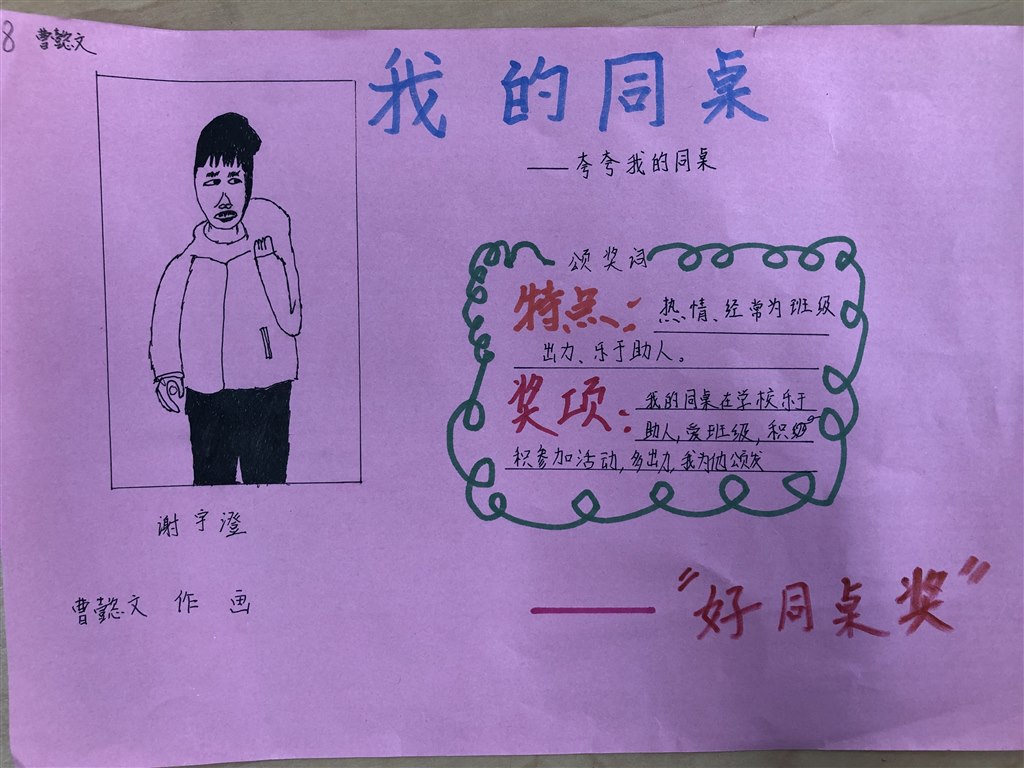 8 曹懿文
我的同桌
——夸夸我的同桌
颁奖词
特点：热情、经常为班级
出力、乐于助人。
奖项：我的同桌在学校乐于
助人，爱班级，积
积参加活动，多出力，我为他颁发
谢宇澄
曹懿文 作 画
——“好同桌奖”